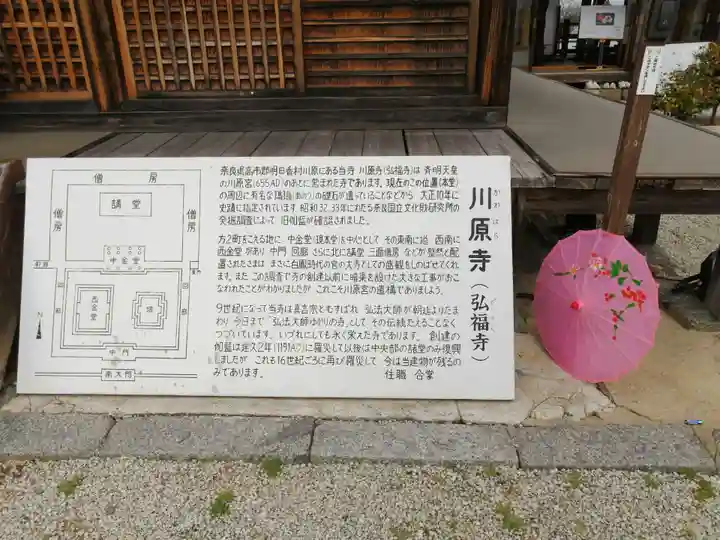 川原寺(弘福寺)
かわ
はら
奈良県高市郡明日香村川原にある当寺 川原寺(弘福寺)は 斉明天皇
の川原宮(655AD)のあとに営まれた寺であります。現在のこの位置(本堂)
の周辺に有名な瑪瑙(めのう)の礎石が遺っていることなどから 大正10年に
史蹟に指定されています 昭和32.33年にわたる奈良国立文化財研究所の
発掘調査によって 旧伽藍が確認されました。
方2町をこえる地に 中金堂(現本堂)を中心として その東南に塔 西南に
西金堂があり 中門 回廊 さらに北に講堂 三面僧房 などが整然と配
置されたさまは まさに白鳳時代の宮の大寺としての盛観をしのばせてくれ
ます。また この調査で寺の創建以前に暗渠を設けた大きな工事がおこ
なわれたことがわかりましたが これこそ川原宮の遺構でありましよう。
9世紀になって当寺は真言宗とむすばれ 弘法大師が朝廷よりたま
わり 今日まで「弘法大師ゆかりの寺」として その伝統たえることなく
つづいています。いづれにしても永く栄えた寺であります。 創建の
伽藍は建久2年(1191A.D)に罹災して以後は中央部の諸堂のみ復興
しましたが これも16世紀ごろに再び罹災して 今は当建物が残るの
みであります。 住職 合掌
僧房
講堂
僧房
僧房
中金堂
回廊
回廊
西金堂
塔
中門
南大門